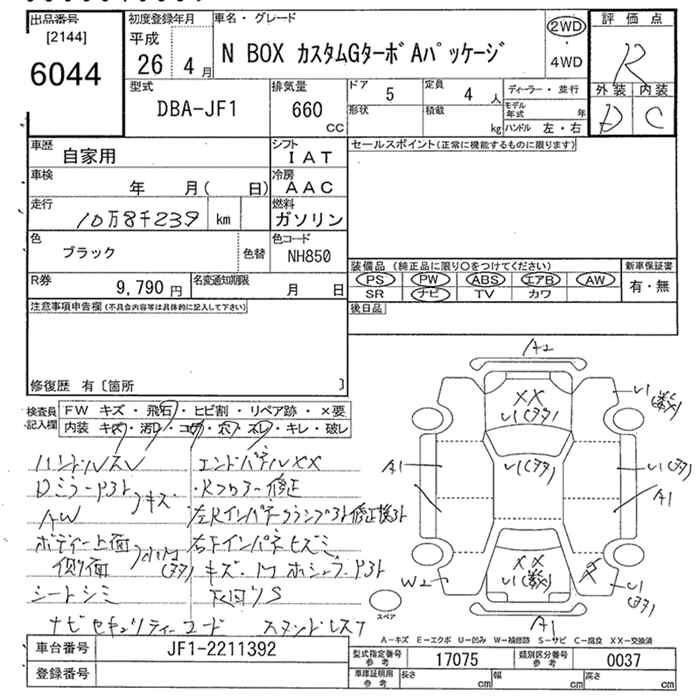 出品番号 初度登録年月 車名・グレード 評価点
[2144] 平成 2WD R
6044 26年 4月 N BOX カスタムGターボ Aパッケージ 4WD
型式 排気量 ドア 5 定員 4人 ディーラー・並行 外装 内装
DBA-JF1 660 cc 形状 積載 kg モデル年式 年 D C
ハンドル 左・右
車歴 自家用 シフト IAT セールスポイント(正常に機能するものに限ります)
車検 年 月( 日) 冷房 AAC
走行 10万8千239 km 燃料 ガソリン
色 ブラック 色替 色コード NH850
装備品(純正品に限り○をつけてください) 新車保証書
R券 9,790円 名変通知期限 月 日 PS PW ABS エアB AW 有・無
SR ナビ TV カワ
注意事項申告欄(不具合内容等は具体的に記入して下さい) 後日品
修復歴 有〔箇所 〕
検査員記入欄 FW キズ・飛石・ヒビ割・リペア跡・×要
内装 キズ・汚れ・コゲ・穴・スレ・キレ・破レ
ハンドルスレ エンドパネルXX
Dミラー
AW キズ 修正
ボディー上面
側面 キズ
シートシミ 下回りS
ナビセキュリティーコード
A2
XX
U1
U1
U1
A1
U1
A1
XX
U1
W2
U1
A1
スペア
A－キズ E－エクボ U－凹み W－補修跡 S－サビ C－腐食 XX－交換済
車台番号 JF1-2211392 型式指定番号 参考 17075 類別区分番号 参考 0037
登録番号 車庫証明用 参考 長さ cm 幅 cm 高さ cm